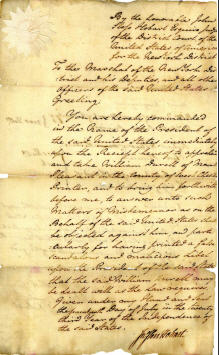 By the honorable John
Sloss Hobart Esquire Judge
of the District Court of the
United States of America
for the New York District
To the Marshal of the New York Dis
trict and his Deputies and all other
officers of the said United States
Greeting.
You are hereby commanded
in the Name of the President of
the said United States immediately
upon the receipt hereof to apprehend
and take William Durell of
in the County of
Printer, and to bring him forthwith
before me to answer unto such
Matters of Misdemeanor as on the
Behalf of the said United States shall
be objected against him and parti
cularly for having printed a false
scandalous and malicious Libel
upon the President of the
that the said William Durell may
be dealt with as the Law requires
Given under my Hand and Seal
the Day of July in the twenty
third Year of the Independence of
the said States.
Jn Sloss Hobart